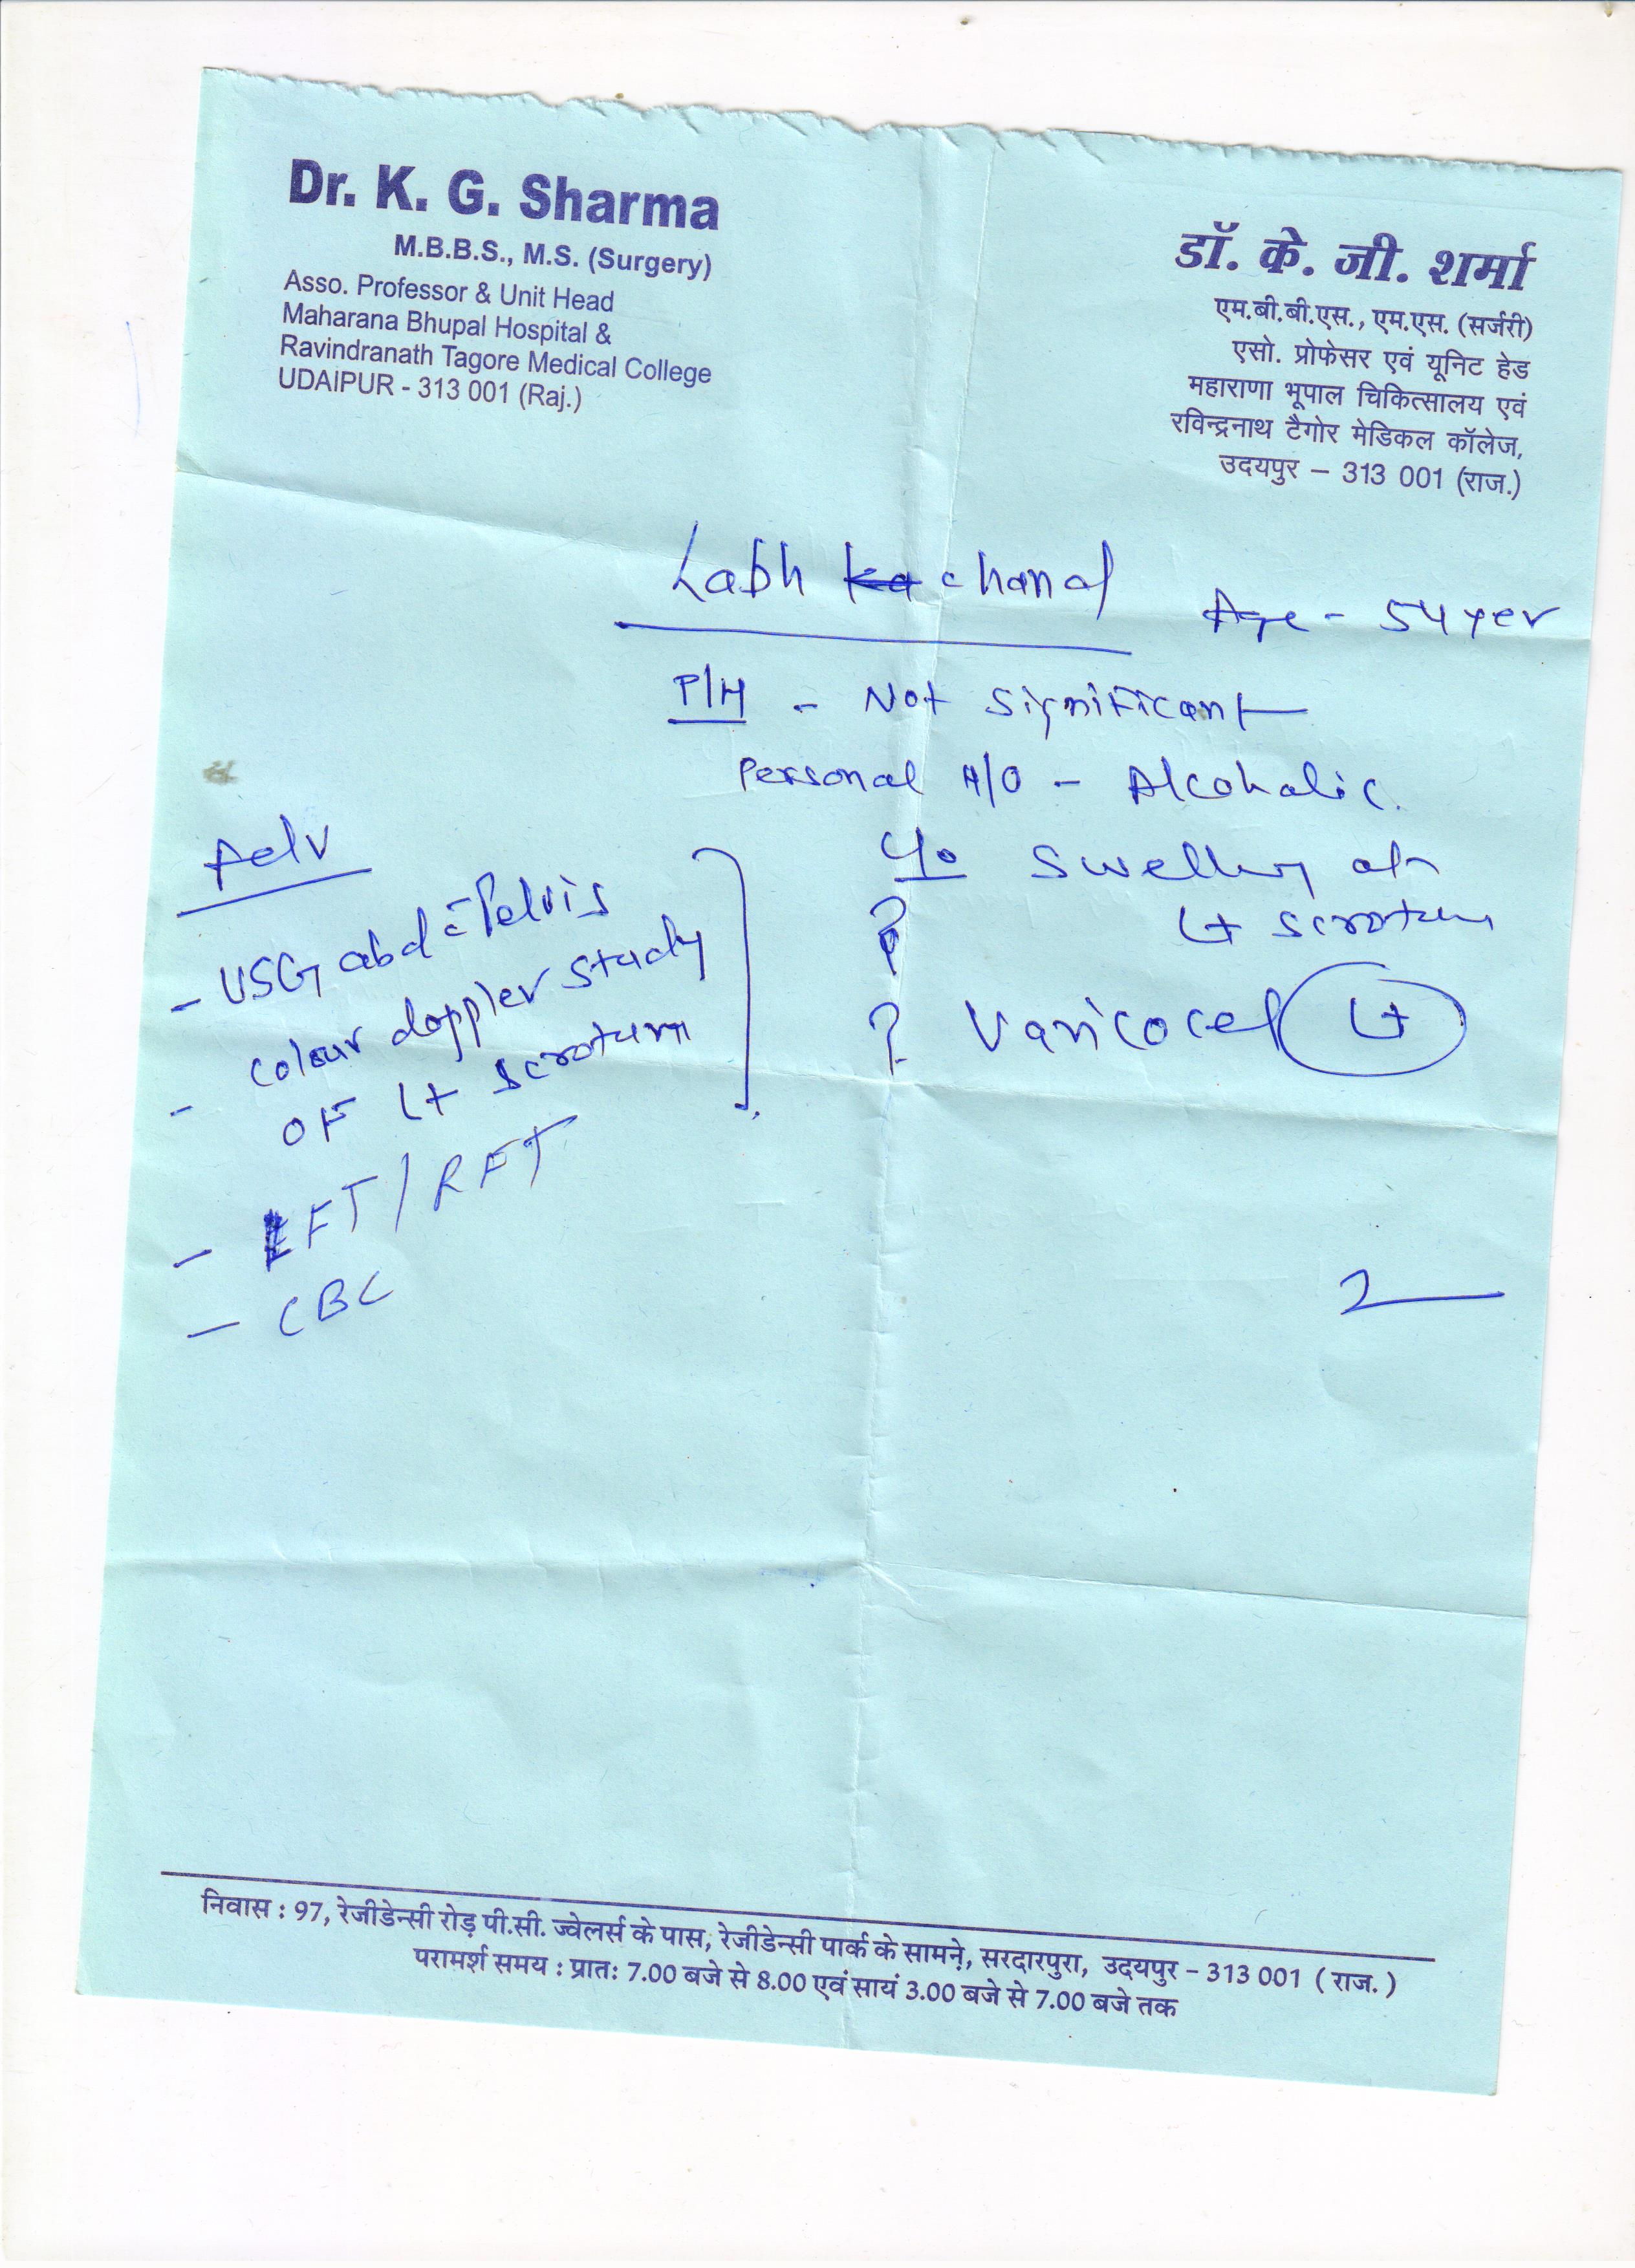 Dr. K. G. Sharma
M.B.B.S., M.S. (Surgery)
Asso. Professor & Unit Head
Maharana Bhupal Hospital &
Ravindranath Tagore Medical College
UDAIPUR - 313 001 (Raj.)
डॉ. के. जी. शर्मा
एम.बी.बी.एस., एम.एस. (सर्जरी)
एसो. प्रोफेसर एवं यूनिट हेड
महाराणा भूपाल चिकित्सालय एवं
रविन्द्रनाथ टैगोर मेडिकल कॉलेज,
उदयपुर – 313 001 (राज.)
Labh chand Age - 54 yer
P/H - Not Significant
Personal H/O - Alcoholic.
C/o Swelling at
? Lt scrotum
? Varicocel Lt
Adv
- USG abd c Pelvis
- colour doppler study
OF Lt scrotum
- LFT / RFT
- CBC
निवास : 97, रेजीडेन्सी रोड़ पी.सी. ज्वेलर्स के पास, रेजीडेन्सी पार्क के सामने, सरदारपुरा, उदयपुर – 313 001 ( राज. )
परामर्श समय : प्रातः 7.00 बजे से 8.00 एवं सायं 3.00 बजे से 7.00 बजे तक